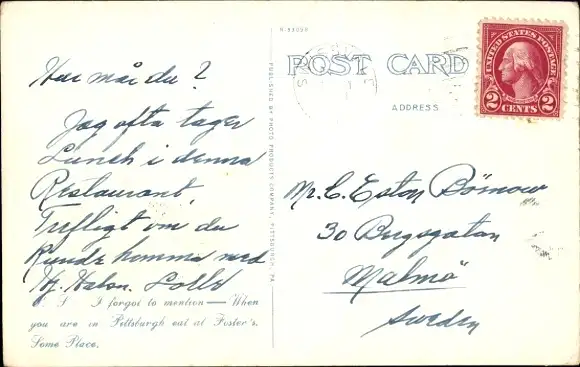 Hur mår du?
Jag ofta tager
Lunch i denna
Restaurant,
Trefligt om du
Kunde komma med
Hj. Helsn.
P. S. I forgot to mention — When
you are in Pittsburgh eat at Foster's.
Some Place.
PUBLISHED BY PHOTO PRODUCTS COMPANY, PITTSBURGH, PA.
POST CARD
ADDRESS
UNITED STATES POSTAGE
2 CENTS 2
Mr. C. Eston
30 Bygsgatan
Malmö
Sweden